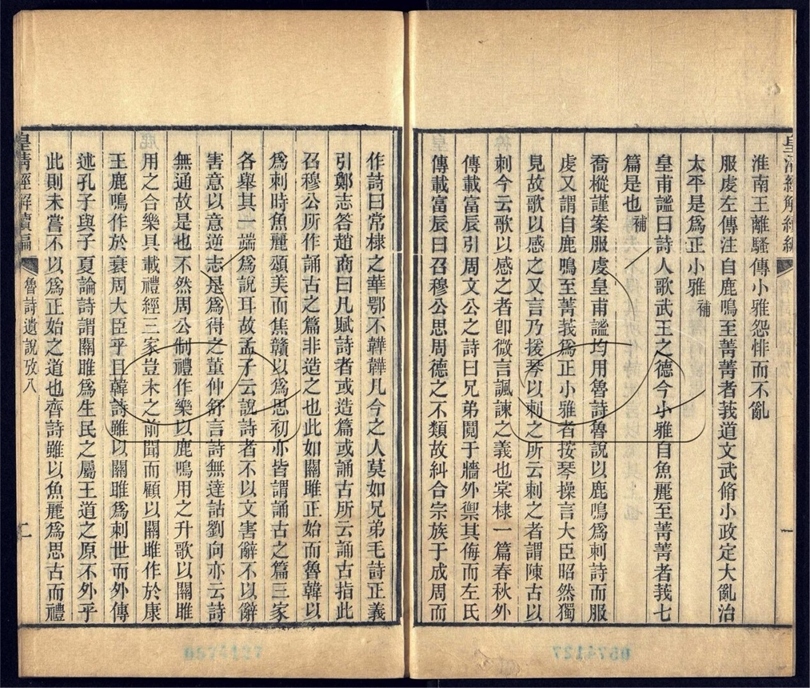 淮南王離騷傳小雅怨悱而不亂
服虔左傳注自鹿鳴至菁菁者莪道文武脩小政定大亂治
太平是爲正小雅補
皇甫謐曰詩人歌武王之德今小雅自魚麗至菁菁者莪七
篇是也補
喬樅謹案服虔皇甫謐均用魯詩魯說以鹿鳴爲刺詩而服
虔又謂自鹿鳴至菁莪爲正小雅者按琴操言大臣昭然獨
見故歌以感之又言乃援琴以刺之所云刺之者謂陳古以
刺今云歌以感之者卽微言諷諫之義也棠棣一篇春秋外
傳載富辰引周文公之詩曰兄弟鬩于牆外禦其侮而左氏
傳載富辰曰召穆公思周德之不類故糾合宗族于成周而
作詩曰常棣之華鄂不韡韡凡今之人莫如兄弟毛詩正義
引鄭志答趙商曰凡賦詩者或造篇或誦古所云誦古指此
召穆公所作誦古之篇非造之也此如關雎正始而魯韓以
爲刺時魚麗頌美而焦贛以爲思初亦皆謂誦古之篇三家
各舉其一端爲說耳故孟子云說詩者不以文害辭不以辭
害意以意逆志是爲得之董仲舒言詩無達詁劉向亦云詩
無通故是也不然周公制禮作樂以鹿鳴用之升歌以關雎
用之合樂具載禮經三家豈未之前聞而顧以關雎作於康
王鹿鳴作於衰周大臣乎且韓詩雖以關雎爲刺世而外傳
述孔子與子夏論詩謂關雎爲生民之屬王道之原不外乎
此則未嘗不以爲正始之道也齊詩雖以魚麗爲思古而禮
皇清經解續編
魯詩遺說攷八
二